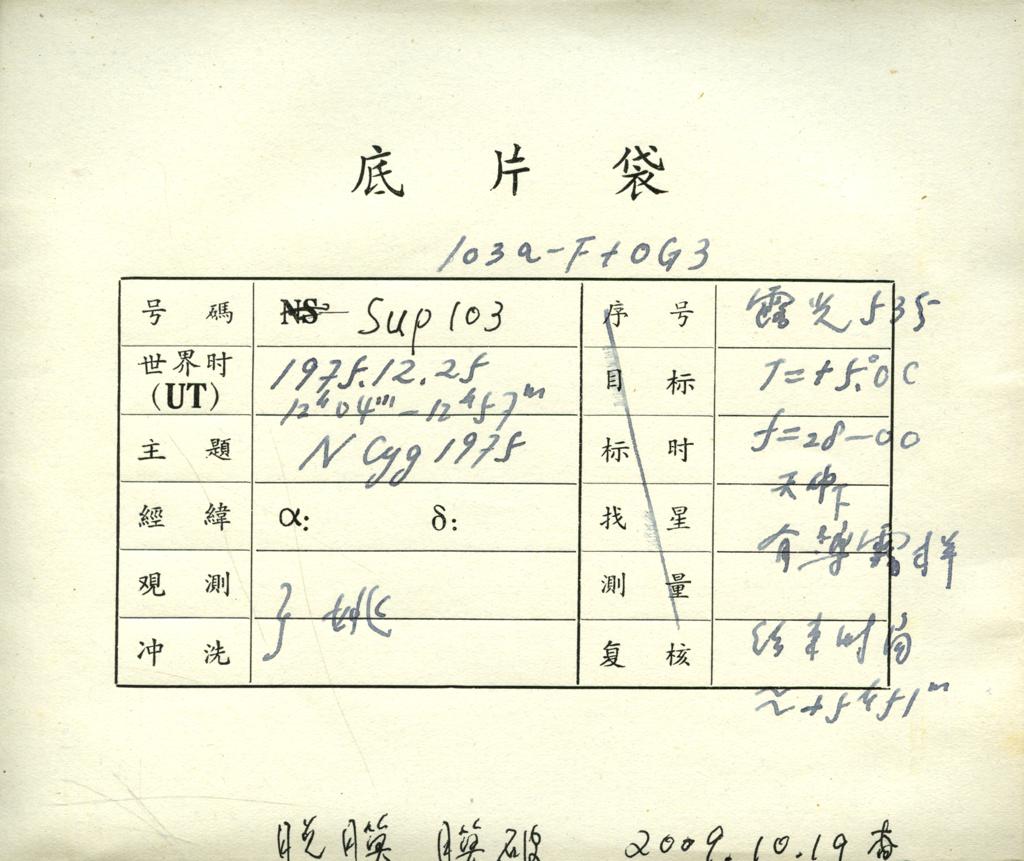 底 片 袋
103a-F+OG3
号 碼 NS Sup 103 序 号 露光 53.5
世界时 (UT) 1975.12.25 目 标 T=+5.°0C
12ʰ04ᵐ-12ʰ57ᵐ
主 題 N Cyg 1975 标 时 f=28-00
天中下
經 緯 α: δ: 找 星 有薄雾样
观 測 测 量
冲 洗 姚 复 核 结束时角
≈+5ʰ51ᵐ
脱膜 膜破 2009.10.19 查